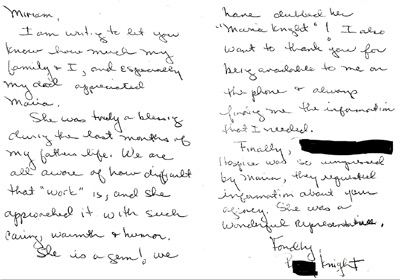 Miriam,
I am writing to let you
know how much my
family & I, and especially
my dad appreciated
Maira.
She was truly a blessing
during the last months of
my fathers life. We are
all aware of how difficult
that "work" is, and she
approached it with such
caring, warmth & humor.
She is a gem! We
have dubbed her
"Maria Knight"! I also
want to thank you for
being available to me on
the phone & always
finding me the information
that I needed.
Finally,
Hospice was so impressed
by Maira, they requested
information about your
agency. She was a
wonderful representative.
Fondly,
Knight